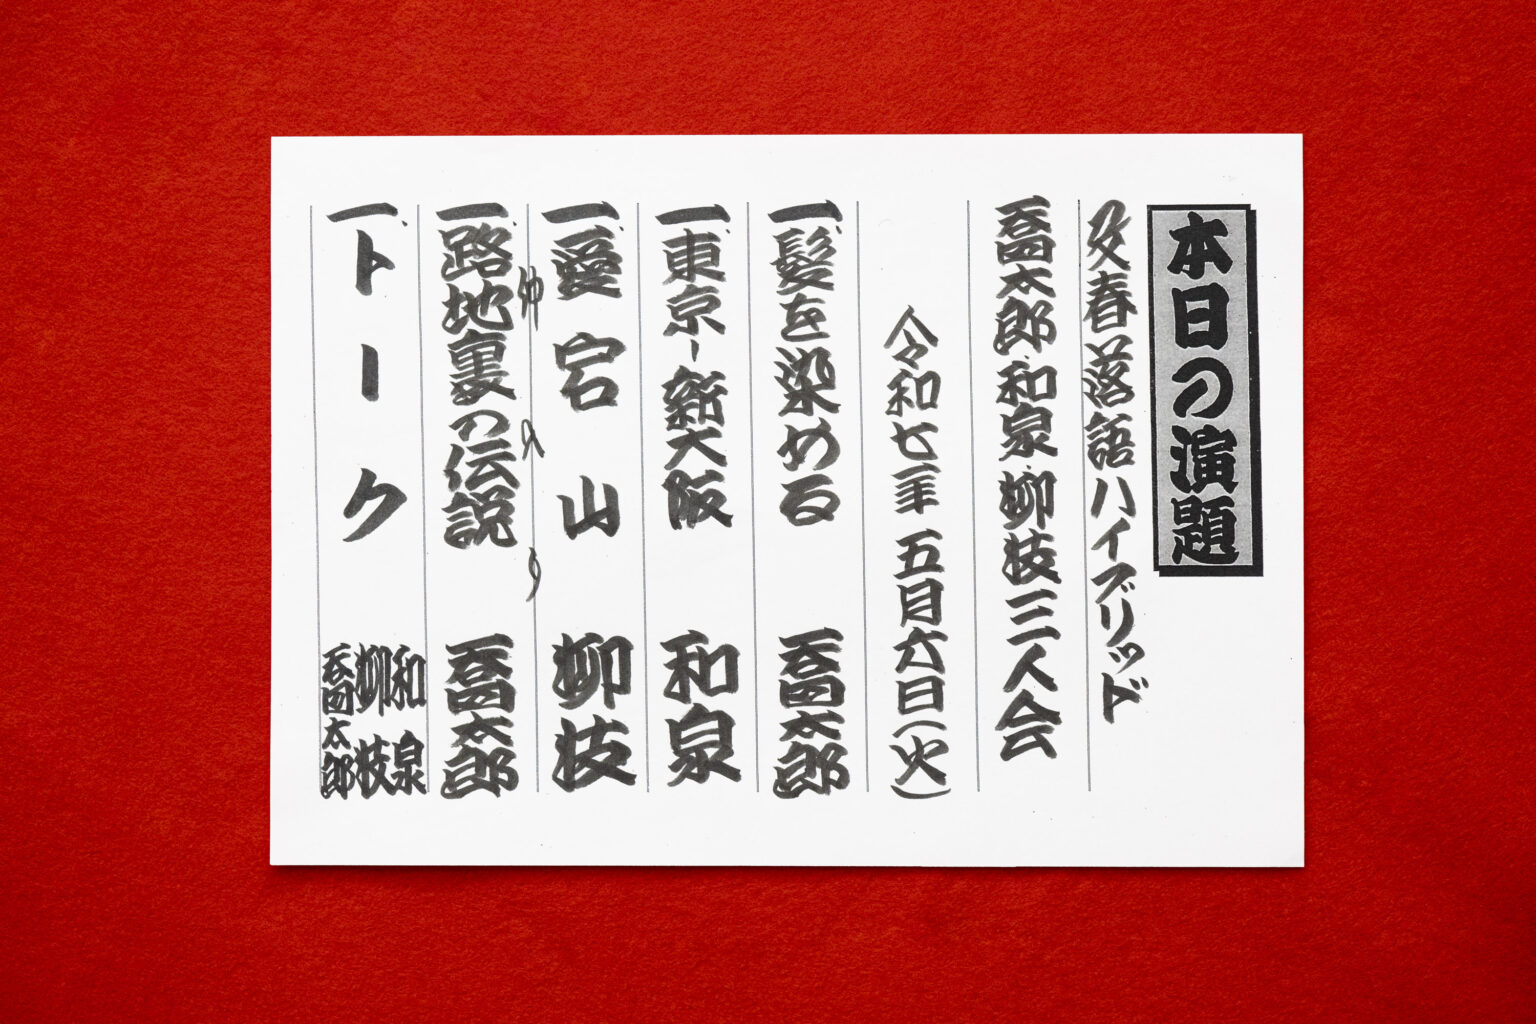 本日の演題
文春落語ハイブリッド
喬太郎・和泉・柳枝三人会
令和七年 五月六日(火)
一、髪を染める 喬太郎
一、東京-新大阪 和泉
一、愛宕山 柳枝
仲入り
一、路地裏の伝説 喬太郎
一、トーク 和泉 柳枝 喬太郎